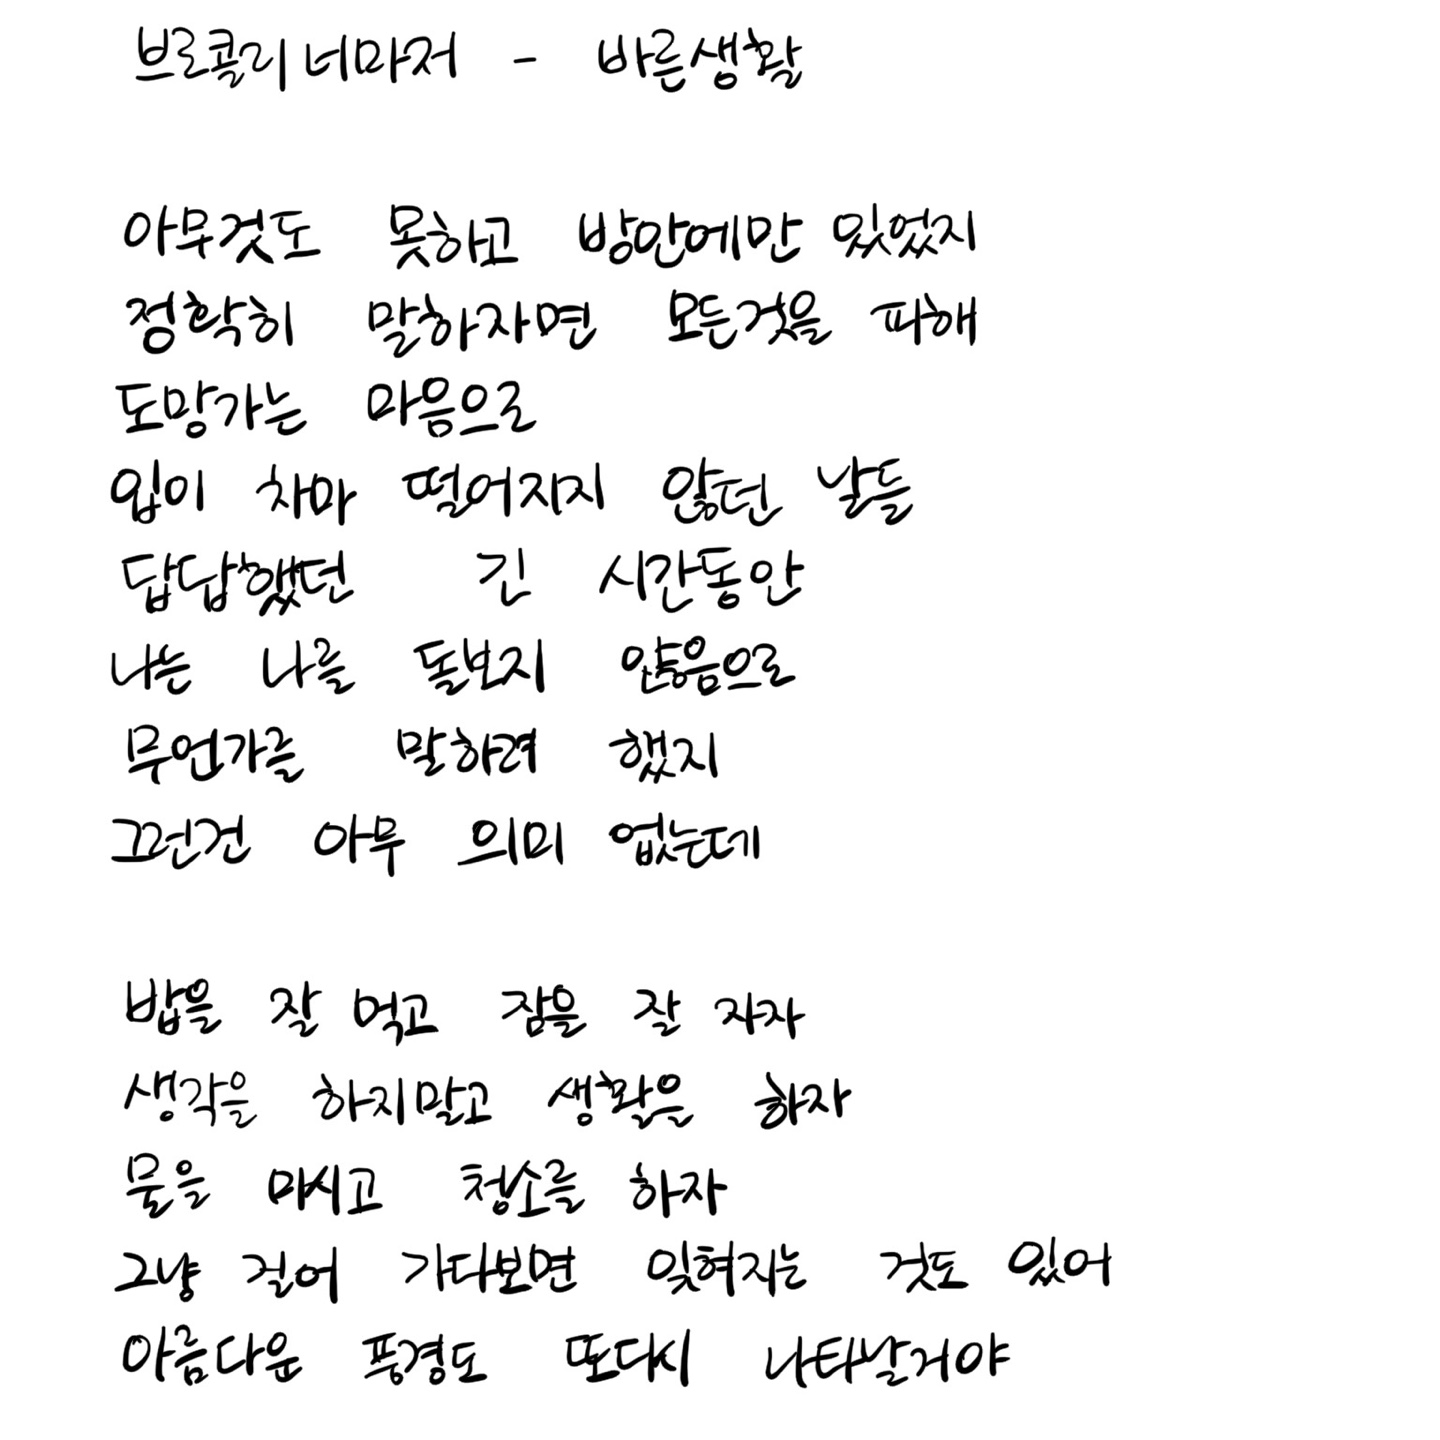 브로콜리너마저 - 바른생활
아무것도 못하고 방안에만 있었지
정확히 말하자면 모든것을 피해
도망가는 마음으로
입이 차마 떨어지지 않던 날들
답답했던 긴 시간동안
나는 나를 돌보지 않음으로
무언가를 말하려 했지
그런건 아무 의미 없는데
밥을 잘 먹고 잠을 잘 자자
생각을 하지말고 생활을 하자
물을 마시고 청소를 하자
그냥 걸어 가다보면 잊혀지는 것도 있어
아름다운 풍경도 또다시 나타날거야